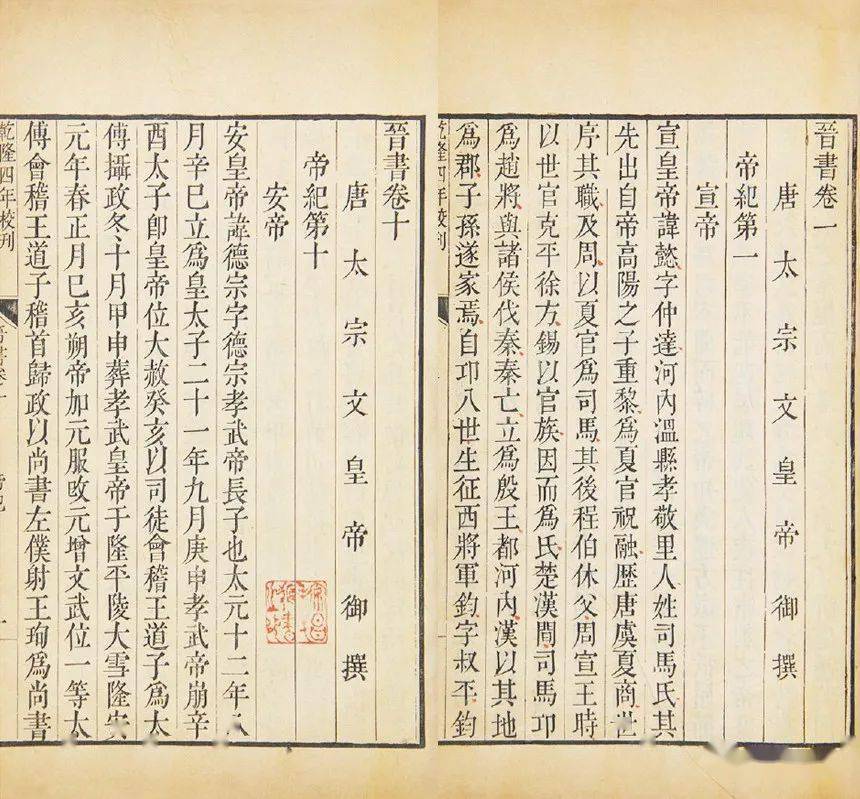 晉書卷一
唐太宗文皇帝御撰
帝紀第一
宣帝
宣皇帝諱懿字仲達河內溫縣孝敬里人姓司馬氏其
先出自帝高陽之子重黎爲夏官祝融歷唐虞夏商世
序其職及周以夏官爲司馬其後程伯休父周宣王時
以世官克平徐方錫以官族因而爲氏楚漢間司馬卬
爲趙將與諸侯伐秦秦亡立爲殷王都河內漢以其地
爲郡子孫遂家焉自卬八世生征西將軍鈞字叔平鈞
乾隆四年校刊
晉書卷十
唐太宗文皇帝御撰
帝紀第十
安帝
安皇帝諱德宗字德宗孝武帝長子也太元十二年八
月辛巳立爲皇太子二十一年九月庚申孝武帝崩辛
酉太子卽皇帝位大赦癸亥以司徒會稽王道子爲太
傅攝政冬十月甲申葬孝武皇帝于隆平陵大雪隆安
元年春正月巳亥朔帝加元服改元增文武位一等太
傅會稽王道子稽首歸政以尚書左僕射王珣爲尚書
乾隆四年校刊